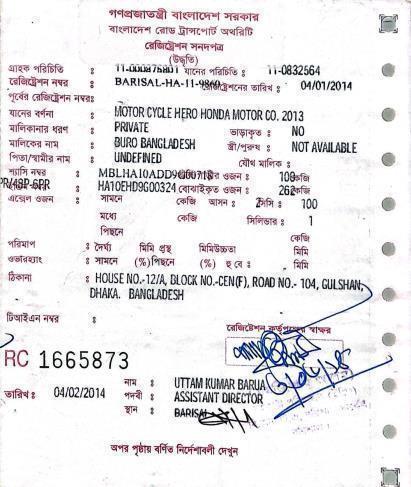 গণপ্রজাতন্ত্রী বাংলাদেশ সরকার
বাংলাদেশ রোড ট্রান্সপোর্ট অথরিটি
রেজিষ্ট্রেশন সনদপত্র
(উদ্ধৃতি)
গ্রাহক পরিচিতি : যানের পরিচিতি : 11-0832564
রেজিষ্ট্রেশন নম্বর : BARISAL-HA-11-9860 রেজিষ্ট্রেশনের তারিখ : 04/01/2014
পূর্বের রেজিষ্ট্রেশন নম্বরঃ
যানের বর্ণনা : MOTOR CYCLE HERO HONDA MOTOR CO. 2013
মালিকানার ধরণ : PRIVATE ভাড়াকৃত : NO
মালিকের নাম : BURO BANGLADESH স্ত্রী/পুরুষ : NOT AVAILABLE
পিতা/স্বামীর নাম : UNDEFINED যৌথ মালিক :
শ্যাসি নম্বর : ওজন : 109 কেজি
HA10EHD9G00324 বোঝাইকৃত ওজন : 262 কেজি
এক্সেল ওজন : সামনে কেজি আসন : 2 সিসি : 100
মধ্যে কেজি সিলিন্ডার : 1
পিছনে কেজি
পরিমাপ : দৈর্ঘ্য মিমি প্রস্থ মিমি উচ্চতা মিমি
ওভারহ্যাং : সামনে (%) পিছনে (%) হু বে : মিমি
ঠিকানা : HOUSE NO.-12/A, BLOCK NO.-CEN(F), ROAD NO.- 104, GULSHAN,
DHAKA. BANGLADESH
টিআইএন নম্বর :
রেজিষ্ট্রেশন কর্তৃপক্ষের স্বাক্ষর
RC 1665873
তারিখঃ 04/02/2014 নাম : UTTAM KUMAR BARUA
পদবী : ASSISTANT DIRECTOR
স্থান : BARISAL
অপর পৃষ্ঠায় বর্ণিত নির্দেশাবলী দেখুন